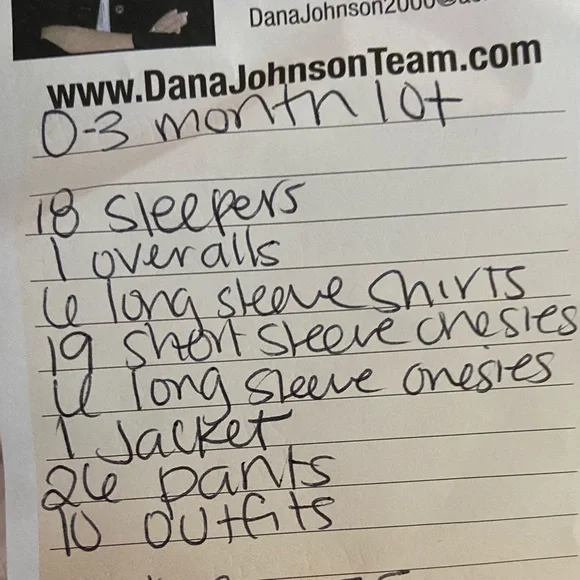 www.DanaJohnsonTeam.com
0-3 month lot
18 sleepers
1 overalls
6 long sleeve shirts
19 short sleeve onesies
6 long sleeve onesies
1 Jacket
26 pants
10 outfits